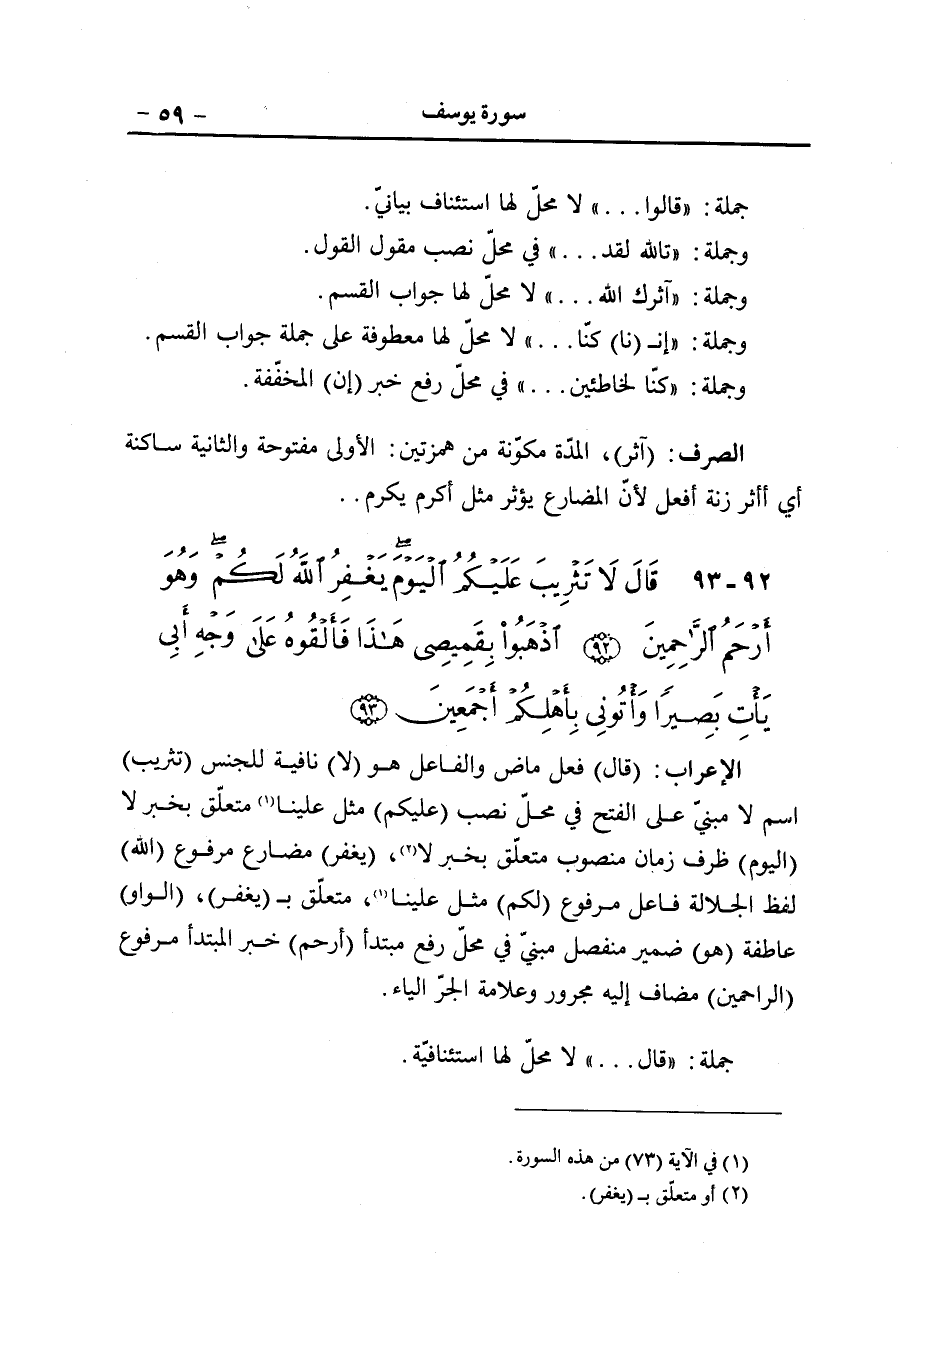 سورة يوسف - ٥٩ -
جملة: «قالوا...» لا محلّ لها استئناف بيانيّ.
وجملة: «تالله لقد...» في محلّ نصب مقول القول.
وجملة: «آثرك الله...» لا محلّ لها جواب القسم.
وجملة: «إنـ (نا) كنّا...» لا محلّ لها معطوفة على جملة جواب القسم.
وجملة: «كنّا لخاطئين...» في محلّ رفع خبر (إن) المخفّفة.
الصرف: (آثر)، المدّة مكوّنة من همزتين: الأولى مفتوحة والثانية ساكنة
أي أأثر زنة أفعل لأنّ المضارع يؤثر مثل أكرم يكرم..
٩٢-٩٣ قَالَ لَا تَثْرِيبَ عَلَيْكُمُ ٱلْيَوْمَ ۖ يَغْفِرُ ٱللَّهُ لَكُمْ ۖ وَهُوَ
أَرْحَمُ ٱلرَّٰحِمِينَ ﴿٩٢﴾ ٱذْهَبُوا۟ بِقَمِيصِى هَٰذَا فَأَلْقُوهُ عَلَىٰ وَجْهِ أَبِى
يَأْتِ بَصِيرًا وَأْتُونِى بِأَهْلِكُمْ أَجْمَعِينَ ﴿٩٣﴾
الإعراب: (قال) فعل ماض والفاعل هو (لا) نافية للجنس (تثريب)
اسم لا مبنيّ على الفتح في محلّ نصب (عليكم) مثل علينا(١) متعلّق بخبر لا
(اليوم) ظرف زمان منصوب متعلّق بخبر لا(٢)، (يغفر) مضارع مرفوع (الله)
لفظ الجلالة فاعل مرفوع (لكم) مثل علينا(١)، متعلّق بـ (يغفر)، (الواو)
عاطفة (هو) ضمير منفصل مبنيّ في محلّ رفع مبتدأ (أرحم) خبر المبتدأ مرفوع
(الراحمين) مضاف إليه مجرور وعلامة الجرّ الياء.
جملة: «قال...» لا محلّ لها استئنافيّة.
(١) في الآية (٧٣) من هذه السورة.
(٢) أو متعلّق بـ (يغفر).